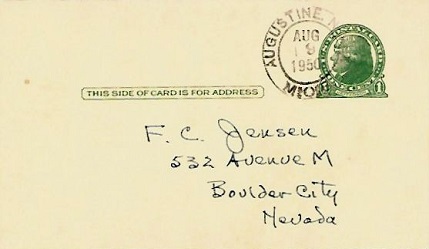 AUGUSTINE
AUG
19
1950
MICH
THIS SIDE OF CARD IS FOR ADDRESS
1
F. C. Jensen
532 Avenue M
Boulder City
Nevada